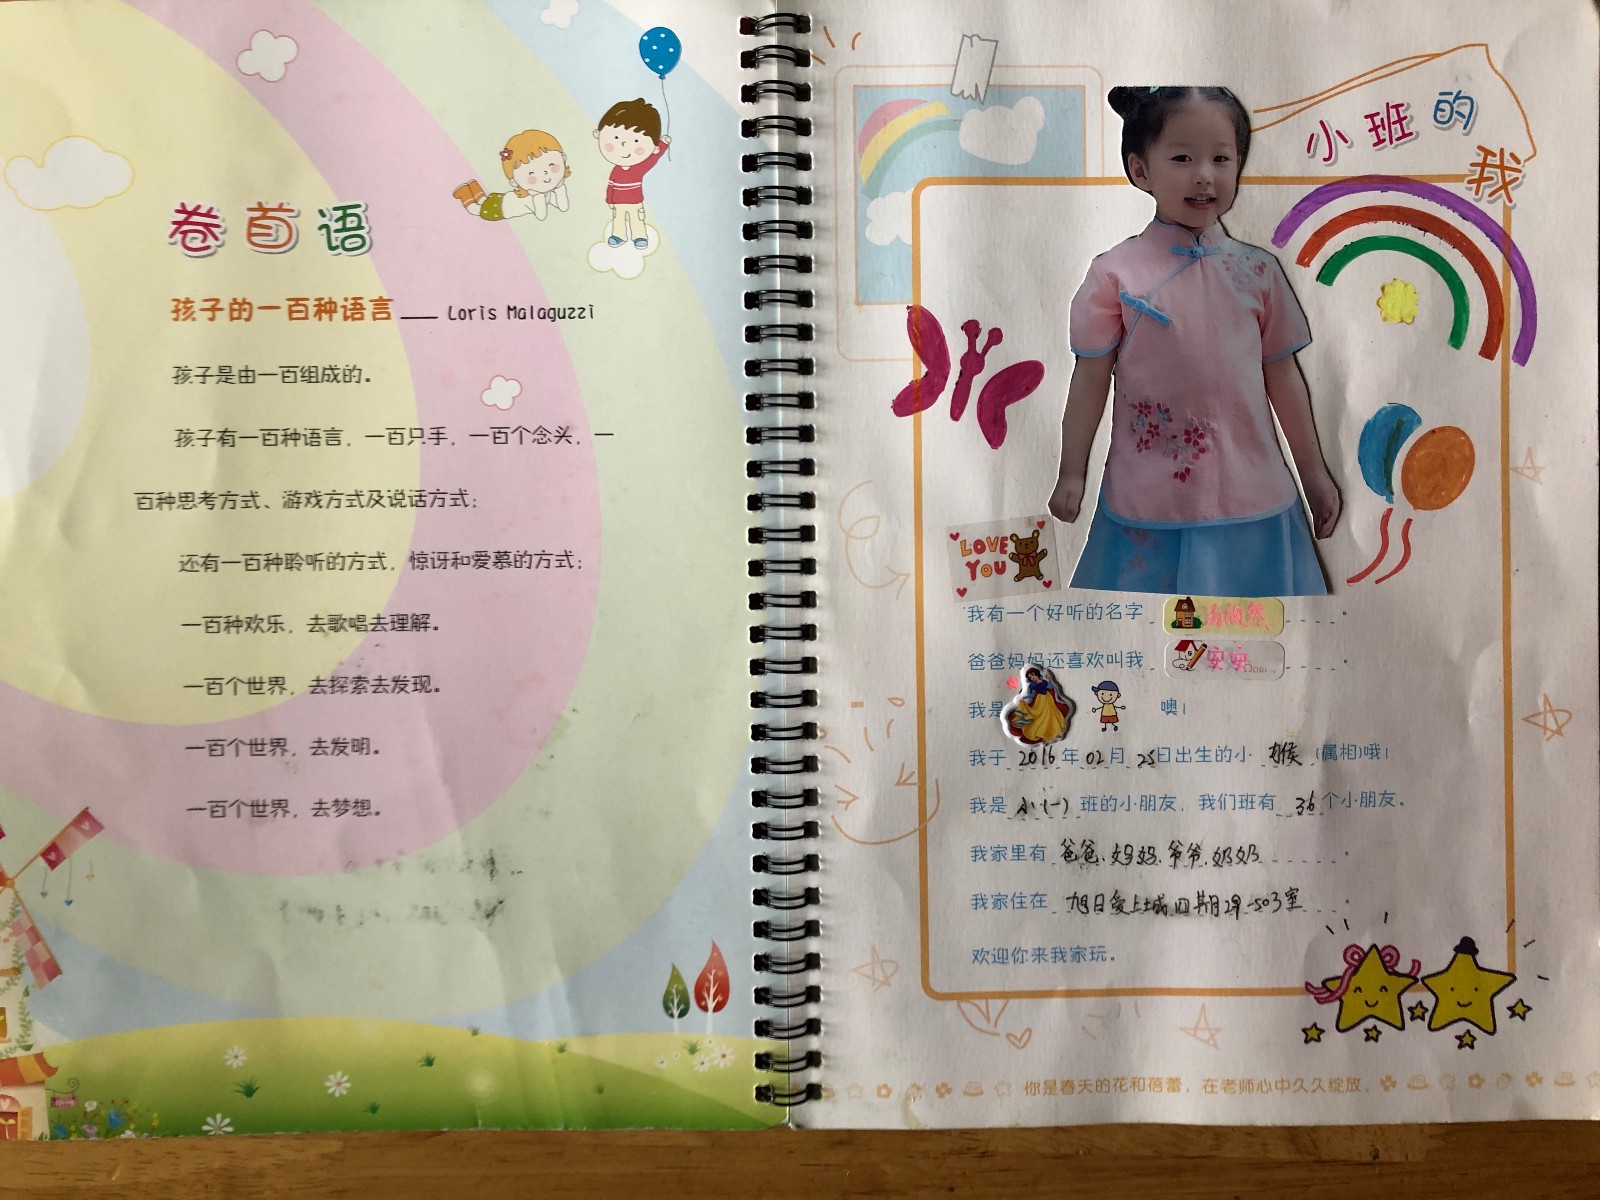 卷首语
孩子的一百种语言 —— Loris Malaguzzi
孩子是由一百组成的。
孩子有一百种语言，一百只手，一百个念头，一
百种思考方式、游戏方式及说话方式；
还有一百种聆听的方式，惊讶和爱慕的方式；
一百种欢乐，去歌唱去理解。
一百个世界，去探索去发现。
一百个世界，去发明。
一百个世界，去梦想。
小班的我
LOVE
YOU
我有一个好听的名字
爸爸妈妈还喜欢叫我 安安
我是 噢！
我于 2016年02月25日出生的小 猴 （属相）哦！
我是 小（一）班的小朋友，我们班有 36个小朋友。
我家里有 爸爸、妈妈、爷爷、奶奶。
我家住在 旭日爱上城四期29-503室。
欢迎你来我家玩。
你是春天的花和蓓蕾，在老师心中久久绽放。